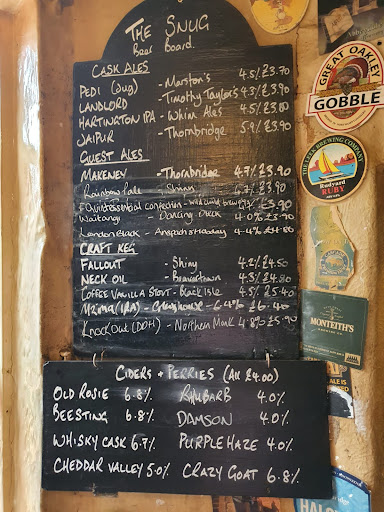 THE SNUG
Beer Board
CASK ALES
PEDI (Jug) - Marston's 4.5% £3.70
LANDLORD - Timothy Taylor's 4.3% £3.90
HARTINGTON IPA - Whim Ales 4.5% £3.80
JAIPUR - Thornbridge 5.9% £3.90
GUEST ALES
MAKENEY - Thornbridge 4.7% £3.90
Rainbow Pale - Shiny £3.90
Quintessential Connection - wild cloud brew £3.90
Waitangi - Dancing Duck 4.0% £3.90
London Black - Anspach & Hobday 4.4%
CRAFT KEG
FALLOUT - Shiny 4.2% £4.50
NECK OIL - Beavertown 4.3% £4.80
COFFEE VANILLA STOUT - Black Isle 4.5% £5.40
(IRA) - 6.4%
KNOCK OUT (DDH) - Northern Monk 4.8% £5.90
CIDERS + PERRIES (All £4.00)
OLD ROSIE 6.8% RHUBARB 4.0%
BEESTING 6.8% DAMSON 4.0%
WHISKY CASK 6.7% PURPLE HAZE 4.0%
CHEDDAR VALLEY 5.0% CRAZY GOAT 6.8%
GREAT OAKLEY
GOBBLE
BREWING COMPANY
Rudyard
RUBY
MONTEITH'S